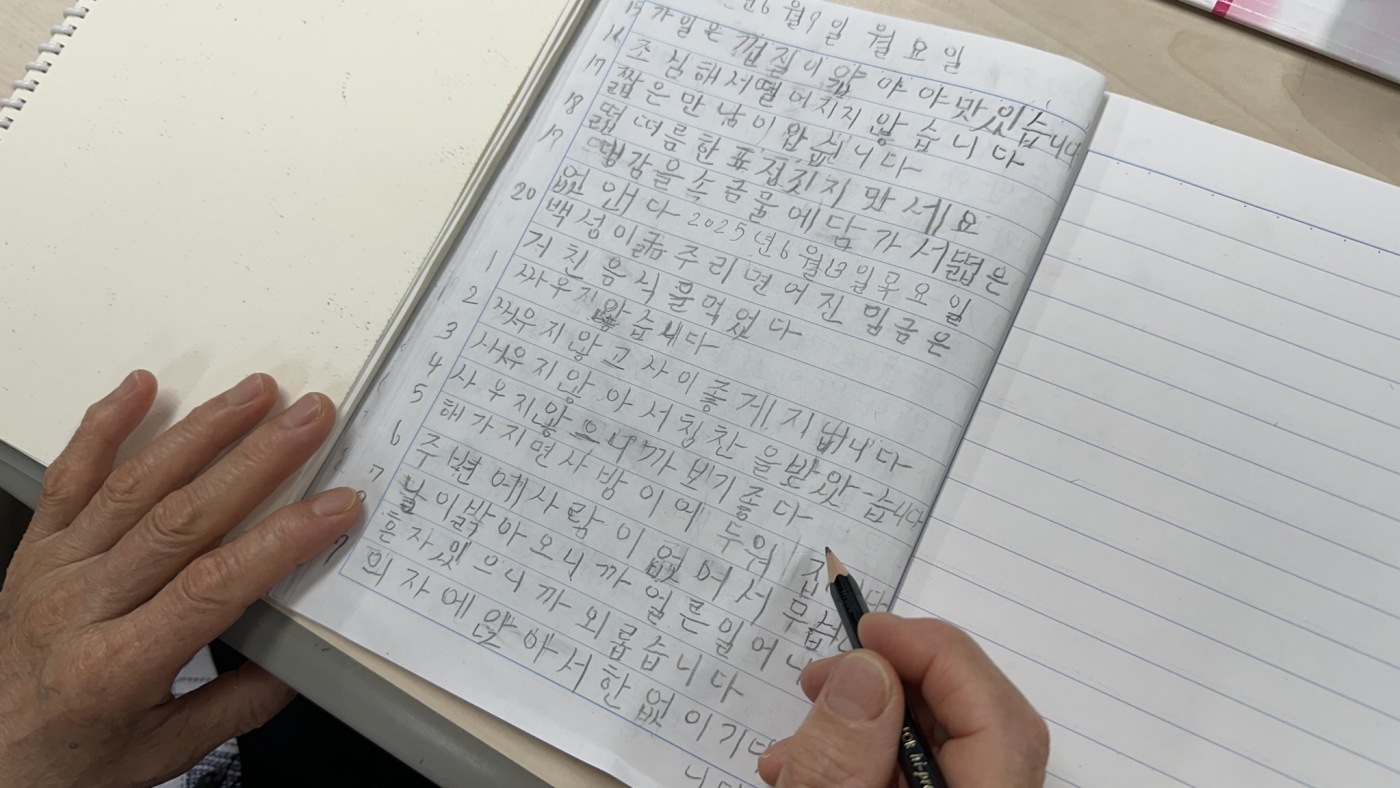 6월9일 월요일
15 가일은 껍질이 얇야야맛있습니다
16 조심해서떨어지지 않습니다
17 짧은만남이 았습니다
18 떫떠름한표정짓지 만세요
19 땡감을소금물에담가서떫은
없앤다 2025년6월13일무요일
20 백성이굶주리면어진 임금은
거친음식을먹었다
1 싸우지않습니다
2 싸우지않고사이좋게 지냅니다
3 싸우지않아서칭찬을받았습니다
4 사우지않으니까보기좋다
5 해가지면사방이어두워
6 주변에사람이없어서 무섭
7 날이밝아오니까얼른일어나
8 혼자있으니까외롭습니다
9 의자에앉아서한없이기다
니다
FOR hi-pr